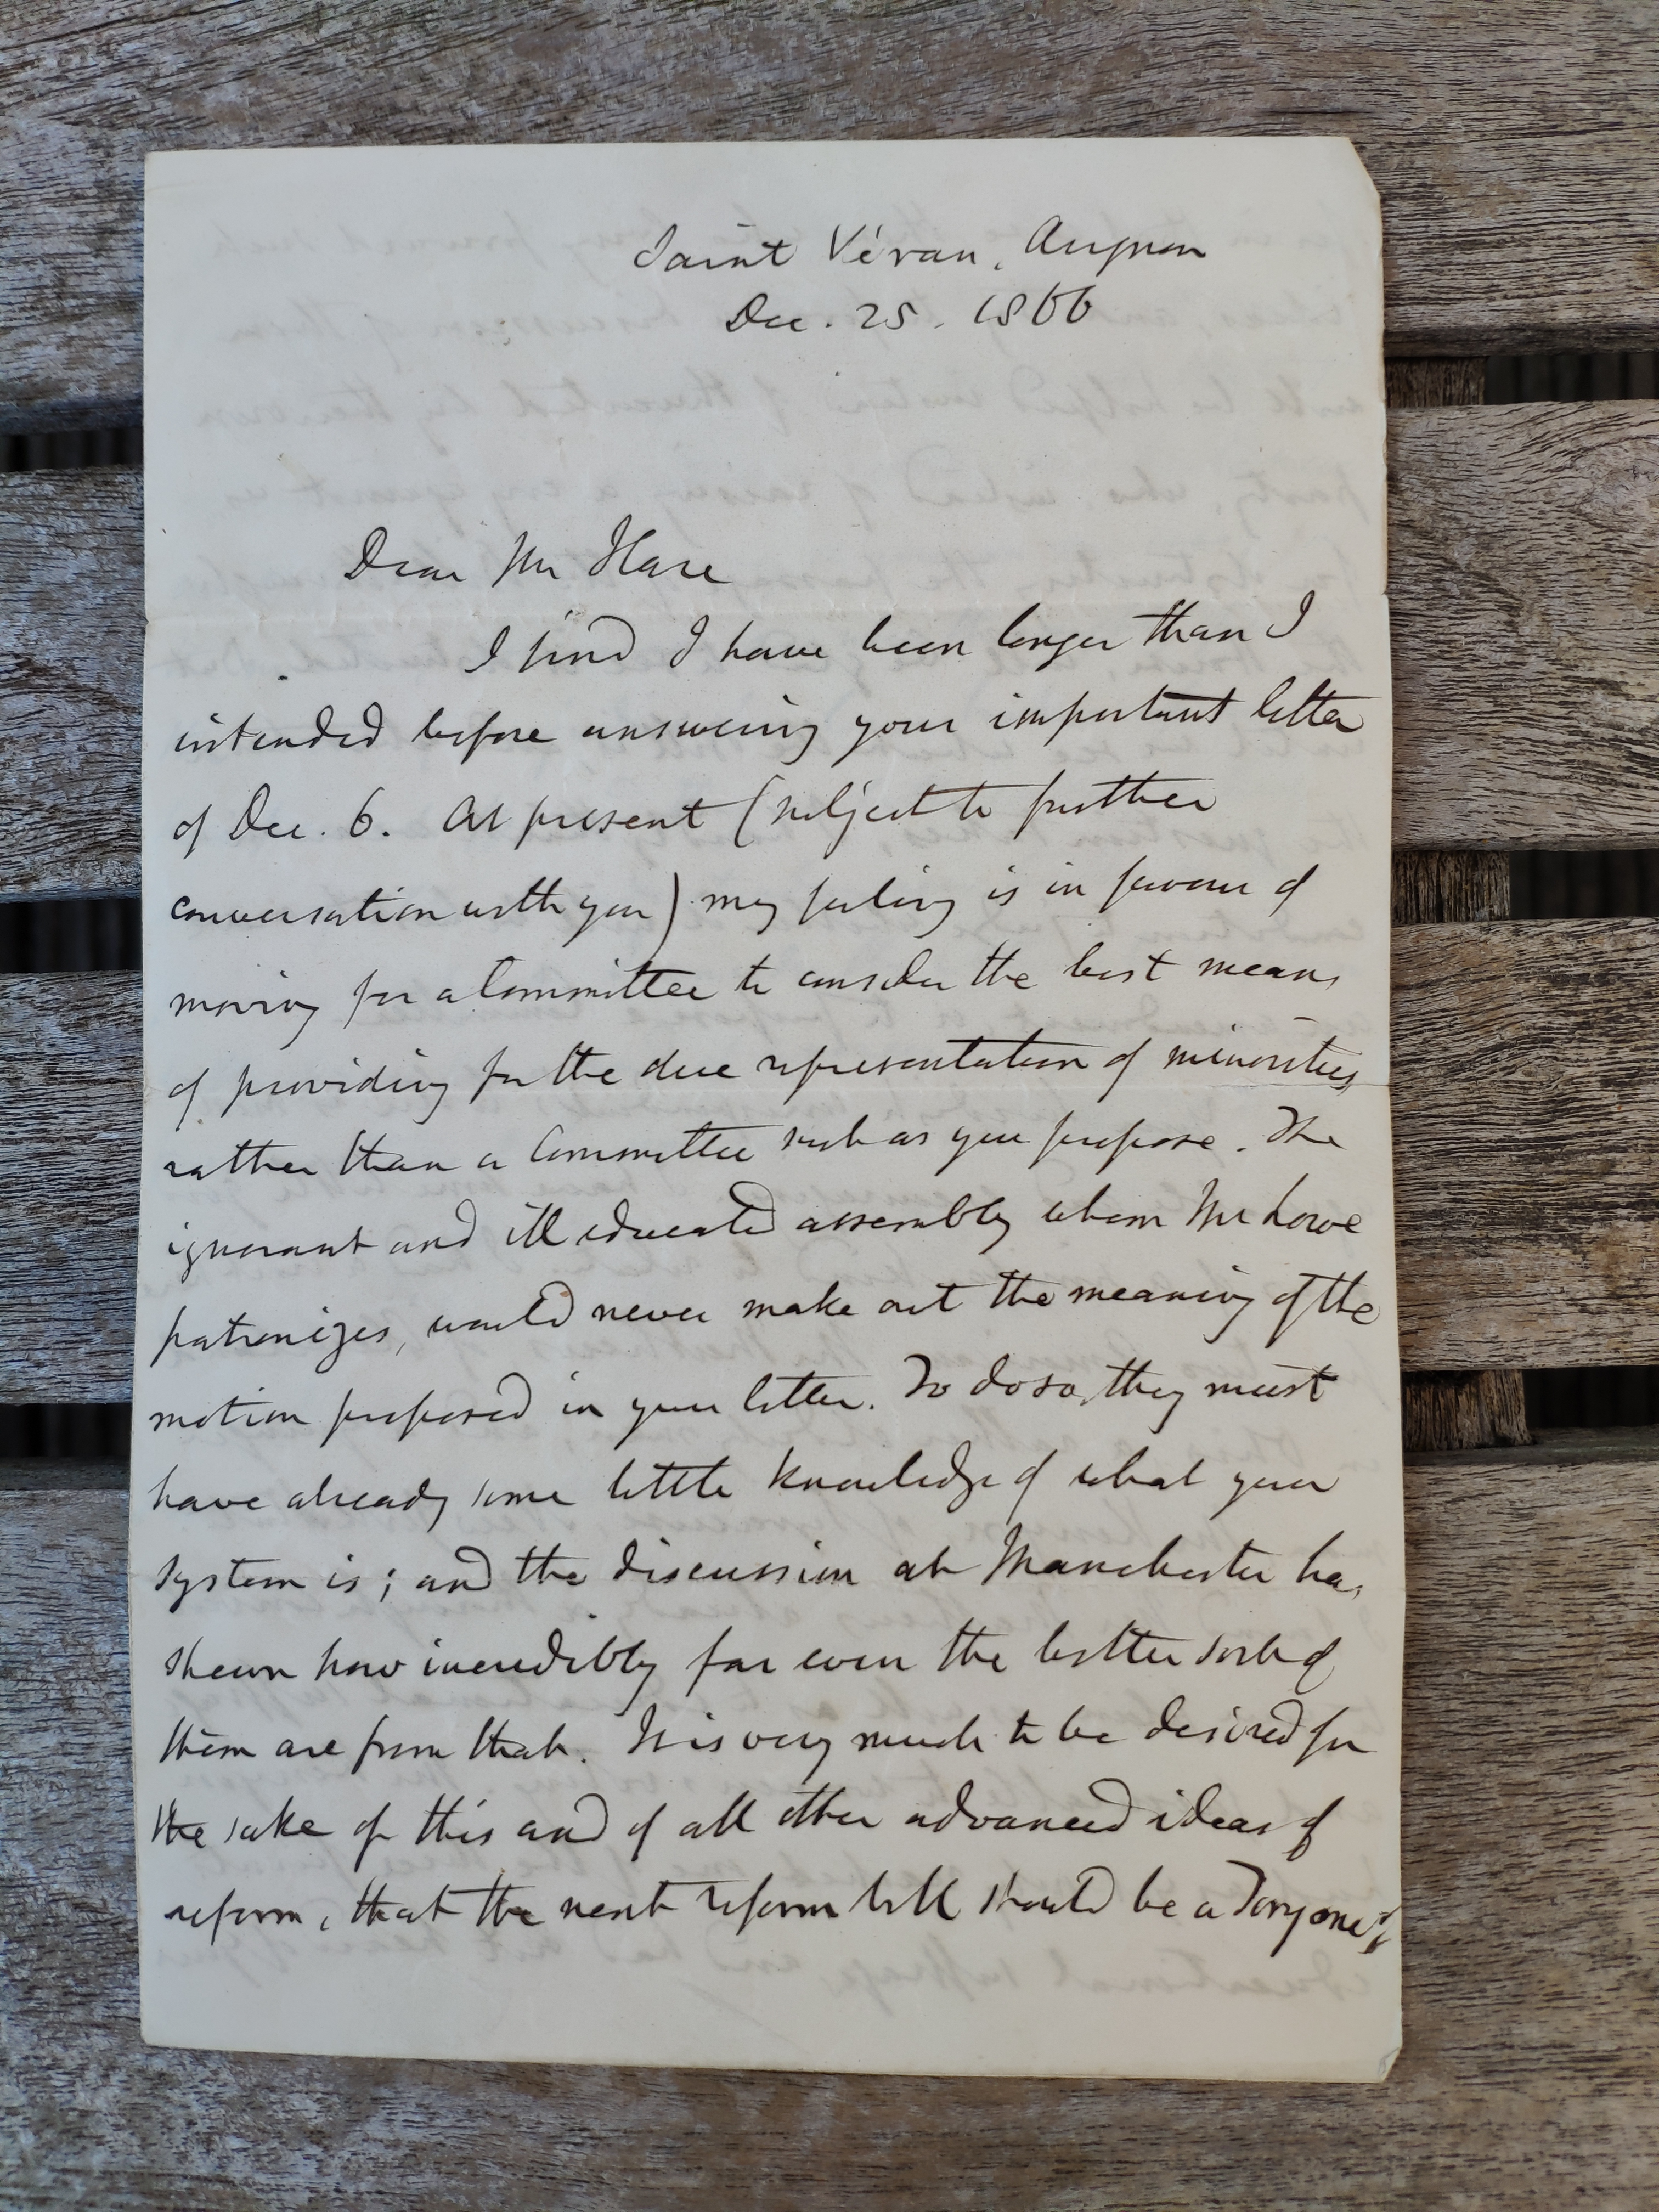 Saint Véran, Avignon
Dec. 25. 1866
Dear Mr Hare
I find I have been longer than I
intended before answering your important letter
of Dec. 6. At present (subject to further
conversation with you) my feeling is in favour of
moving for a Committee to consider the best means
of providing for the due representation of minorities
rather than a Committee such as you propose. The
ignorant and ill educated assembly whom Mr Lowe
patronizes, would never make out the meaning of the
motion proposed in your letter. To do so, they must
have already some little knowledge of what your
system is; and the discussion at Manchester has
shewn how incredibly far even the better sort of
them are from that. It is very much to be desired for
the sake of this and of all other advanced ideas of
reform, that the next reform bill should be a Tory one;